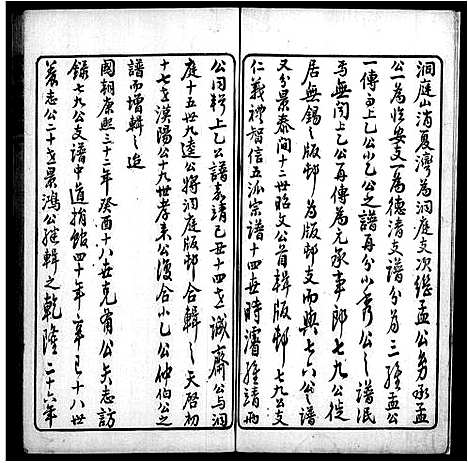 洞庭山消夏灣為洞庭支次繼孟公勇承孟
公一為臨安支一為德清支譜分為三繼孟公
一傳而上乙公小乙公之譜再分少秀公之譜泯
焉無聞上乙公再傳為元承事郎七九公從
居無錫之版邨為版邨支而與七六公之譜
又分景泰間十二世昭文公首輯版邨七九公支
仁義禮智信五派宗譜十四世時濬經請冊
公同輯上乙公譜嘉靖己丑十四世誠齋公與洞
庭十五世九逵公將洞庭版邨合輯之天啟初
十七世漢陽公九世孝來公復合小乙公仲伯公之
譜而增輯之迨
國朝康熙三十二年癸酉十八世克有公矢志訪
錄七九公支譜中道捐館四十年辛巳十八世
養志公二十世景鴻公續輯之乾隆二十六年